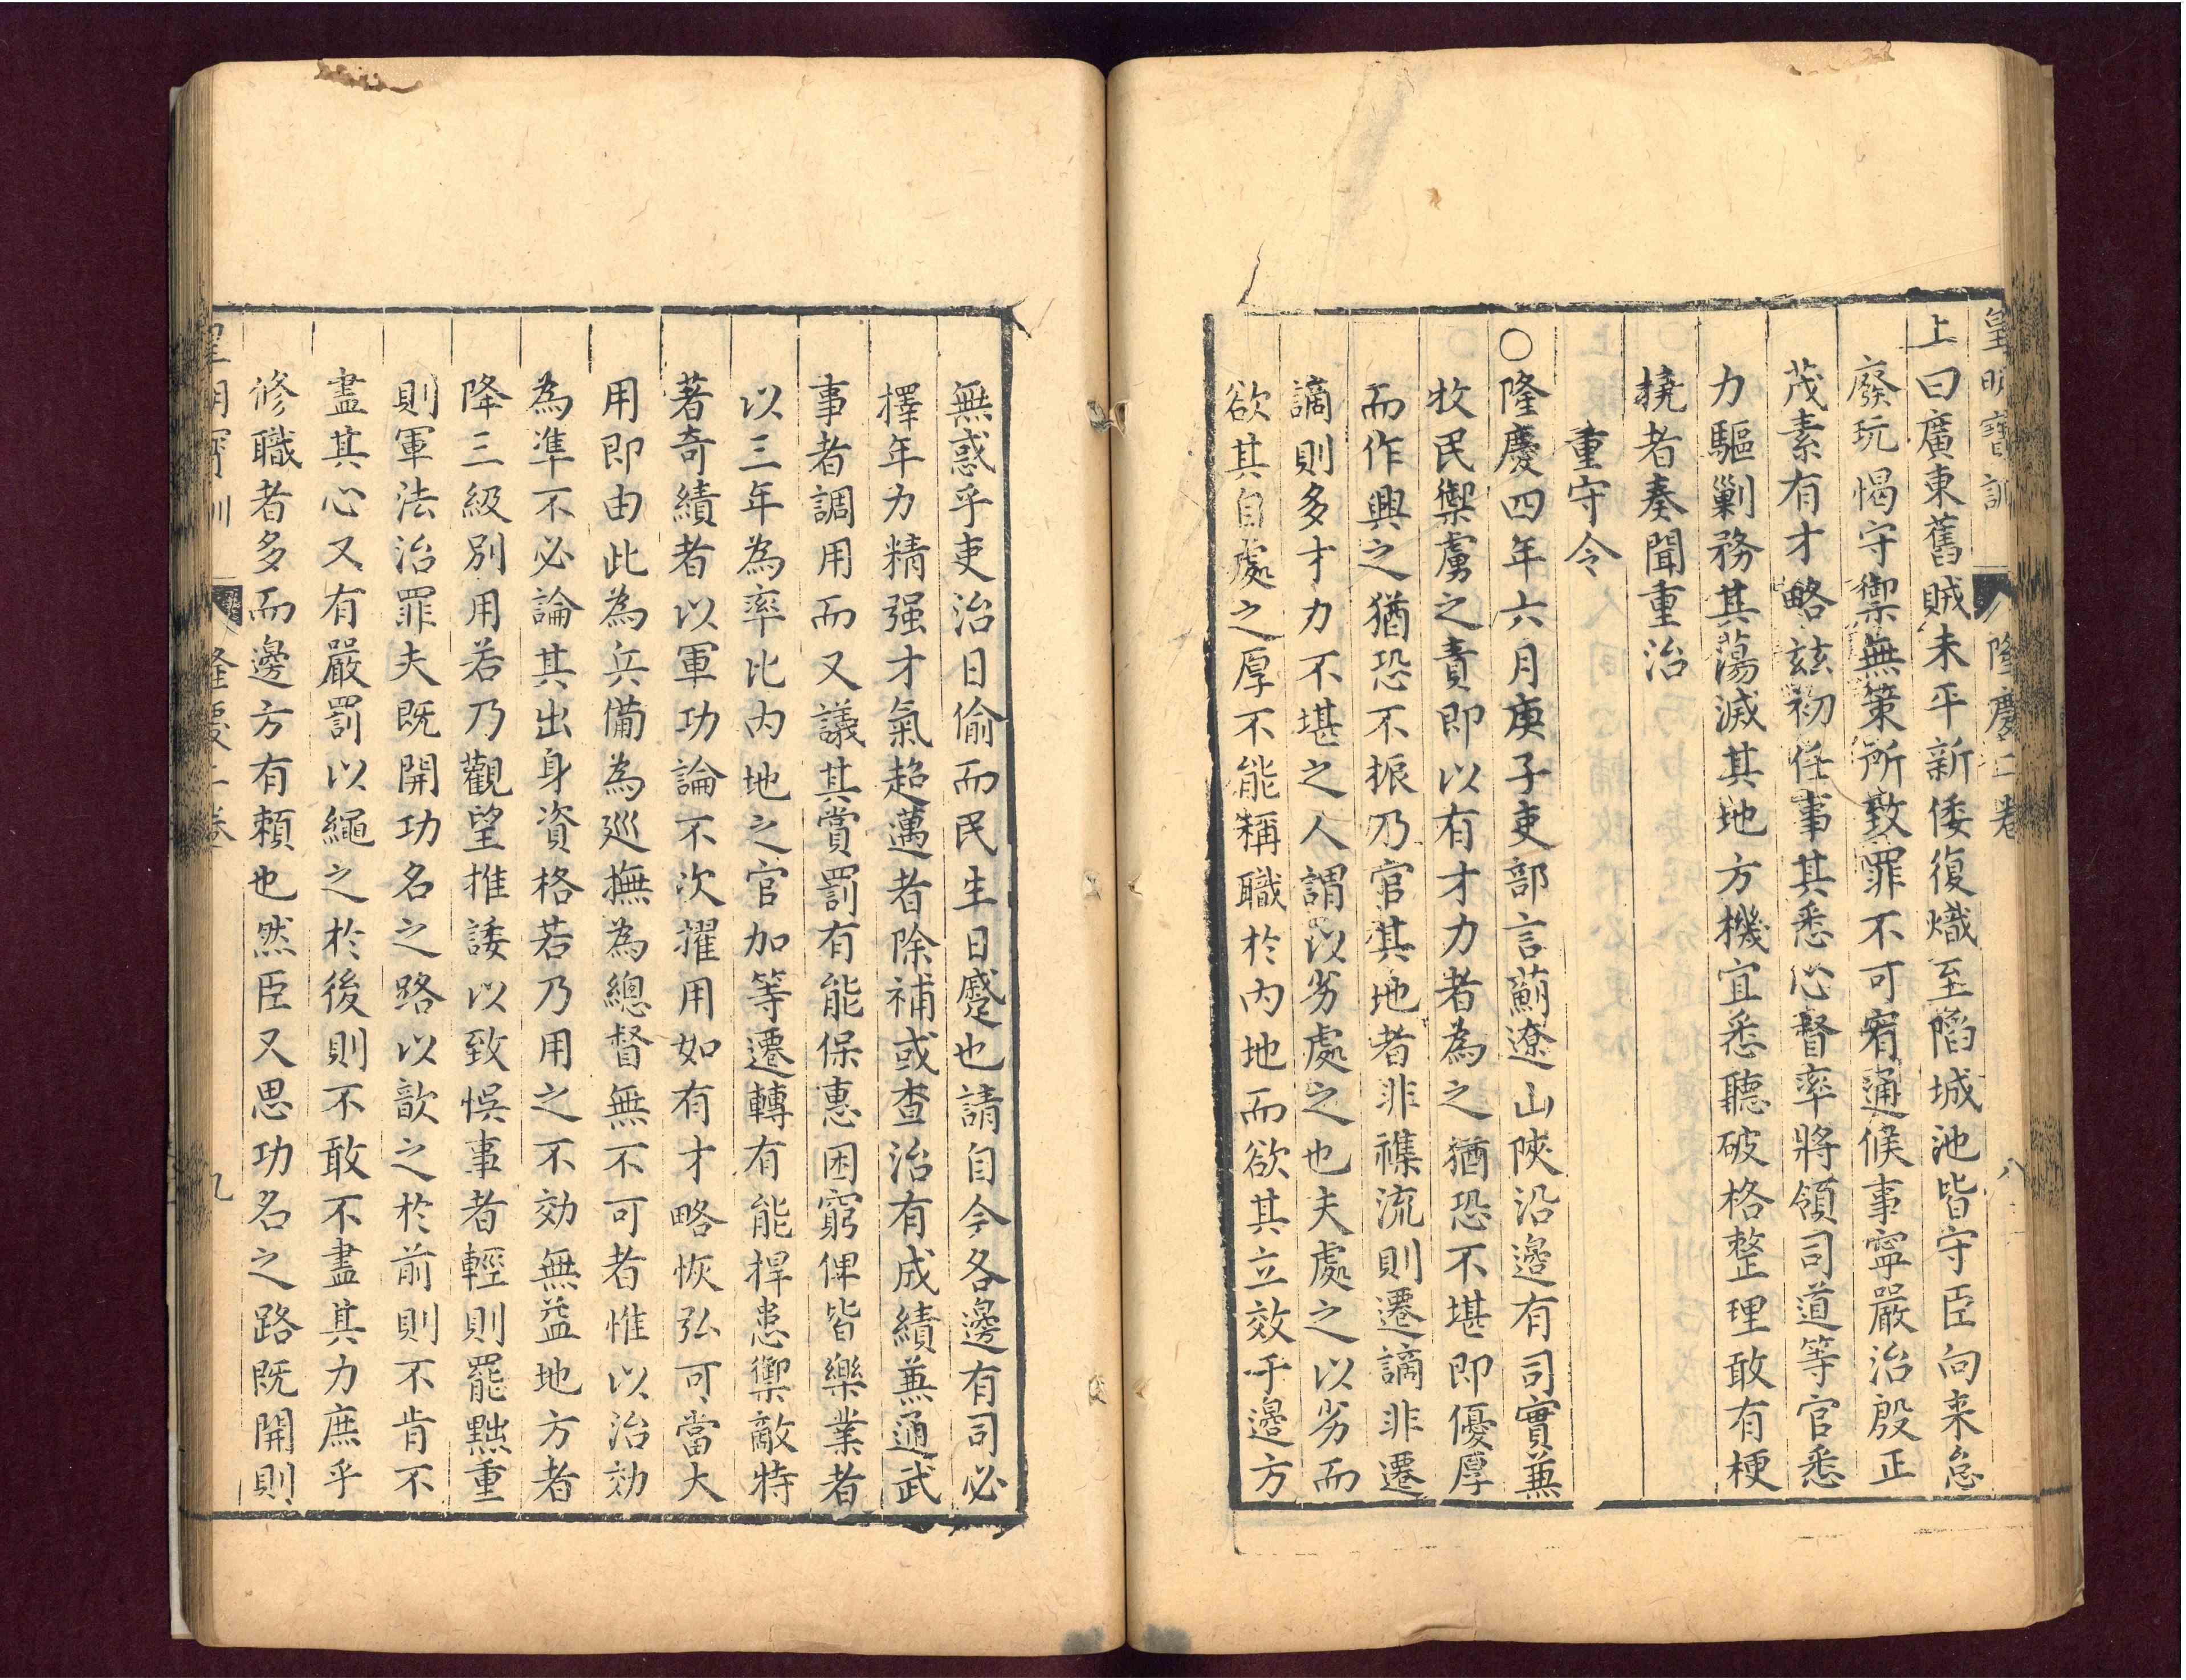 皇明寶訓 隆慶二卷 八
上曰廣東舊賊未平新倭復熾至陷城池皆守臣向来怠
廢玩愒守禦無策所致罪不可宥通候事寧嚴治殷正
茂素有才略兹初任事其悉心督率將領司道等官悉
力驅剿務其蕩滅其地方機宜悉聽破格整理敢有梗
撓者奏聞重治
重守令
○隆慶四年六月庚子吏部言薊遼山陝沿邊有司實兼
牧民禦虜之責即以有才力者為之猶恐不堪即優厚
而作興之猶恐不振乃官其地者非襍流則遷謫非遷
謫則多才力不堪之人謂以劣處之也夫處之以劣而
欲其自處之厚不能稱職於內地而欲其立效于邊方
無惑乎吏治日偷而民生日蹙也請自今各邊有司必
擇年力精强才氣超邁者除補或查治有成績兼通武
事者調用而又議其賞罰有能保惠困窮俾皆樂業者
以三年為率比內地之官加等遷轉有能捍患禦敵特
著奇績者以軍功論不次擢用如有才略恢弘可當大
用即由此為兵備為巡撫為總督無不可者惟以治効
為準不必論其出身資格若乃用之不効無益地方者
降三級別用若乃觀望推諉以致悞事者輕則罷黜重
則軍法治罪夫既開功名之路以歆之於前則不肯不
盡其心又有嚴罰以繩之於後則不敢不盡其力庶乎
修職者多而邊方有賴也然臣又思功名之路既開則
皇明寶訓 隆慶二卷 九